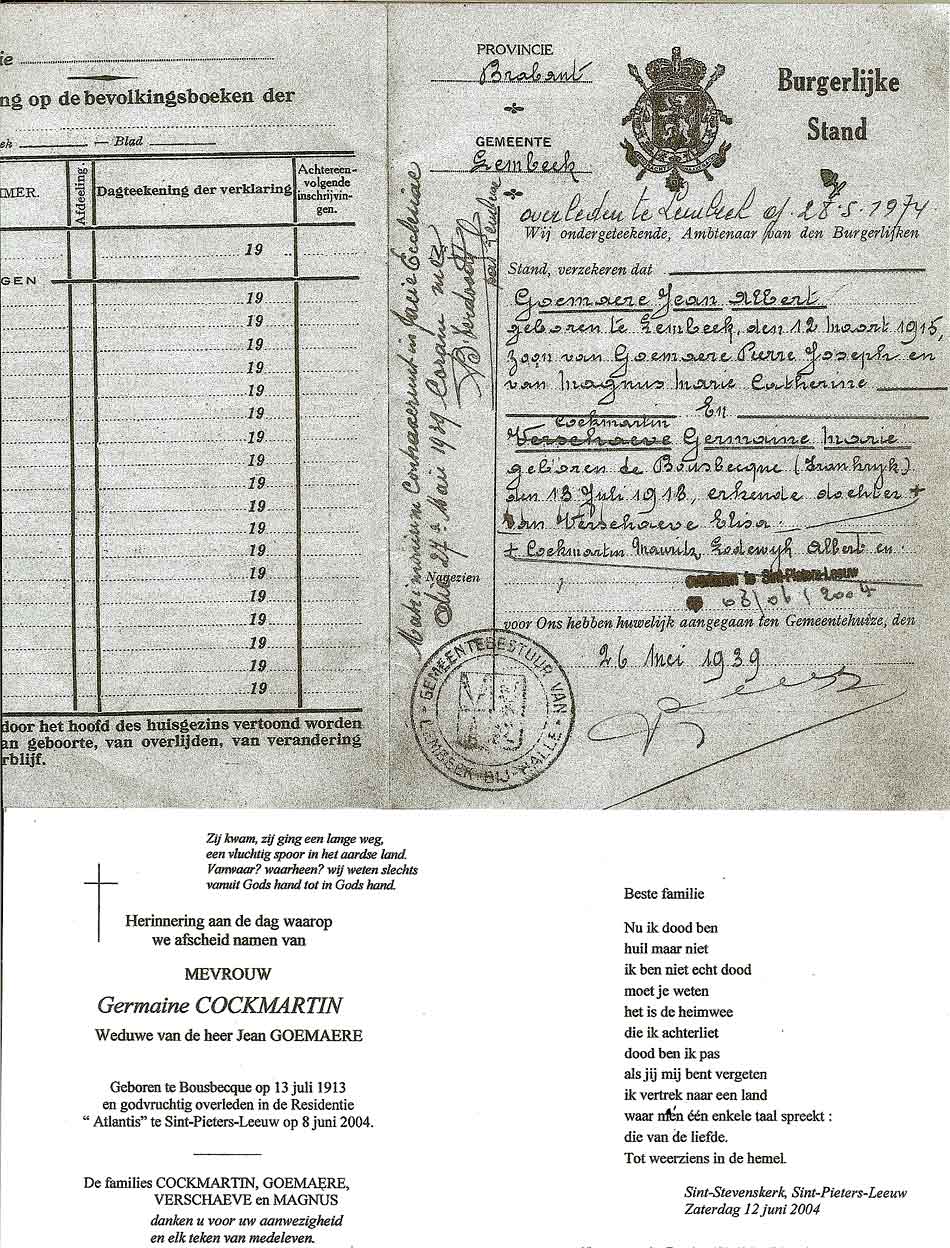 ng op de bevolkingsboeken der
Blad
MER.
Afdeeling.
Dagteekening der verklaring
Achtereen-
volgende
inschrijvin-
gen.
19
GEN
19
19
19
19
19
19
19
19
19
19
19
19
19
19
19
19
19
19
door het hoofd des huisgezins vertoond worden
an geboorte, van overlijden, van verandering
rblijf.
PROVINCIE
Brabant
GEMEENTE
Lembeek
Burgerlijke
Stand
overleden te Lembeek op 28-5-1974.
Wij ondergeteekende, Ambtenaar van den Burgerlijken
Stand, verzekeren dat
Goemaere Jean Albert
geboren te Lembeek, den 12 Maart 1915,
zoon van Goemaere Pierre Joseph en
van Magnus Marie Catherine
En
Cockmartin
Verschaeve Germaine Marie
geboren de Bousbecque (Frankryk)
den 13 Juli 1913, erkende dochter +
van Verschaeve Elisa
+ Cockmartin Mauritz Lodewyk Albert en
Nagezien
overleden te Sint-Pieters-Leeuw
08/06/2004
voor Ons hebben huwelijk aangegaan ten Gemeentehuize, den
26 Mei 1939
Matrimonium Contraxerunt in facie Ecclesiae
die 27a Maii 1939 Coram me
GEMEENTEBESTUUR VAN
LEMBEEK-BIJ-HALLE
Zij kwam, zij ging een lange weg,
een vluchtig spoor in het aardse land.
Vanwaar? waarheen? wij weten slechts
vanuit Gods hand tot in Gods hand.
Herinnering aan de dag waarop
we afscheid namen van
MEVROUW
Germaine COCKMARTIN
Weduwe van de heer Jean GOEMAERE
Geboren te Bousbecque op 13 juli 1913
en godvruchtig overleden in de Residentie
“ Atlantis” te Sint-Pieters-Leeuw op 8 juni 2004.
De families COCKMARTIN, GOEMAERE,
VERSCHAEVE en MAGNUS
danken u voor uw aanwezigheid
en elk teken van medeleven.
Beste familie
Nu ik dood ben
huil maar niet
ik ben niet echt dood
moet je weten
het is de heimwee
die ik achterliet
dood ben ik pas
als jij mij bent vergeten
ik vertrek naar een land
waar mén één enkele taal spreekt :
die van de liefde.
Tot weerziens in de hemel.
Sint-Stevenskerk, Sint-Pieters-Leeuw
Zaterdag 12 juni 2004